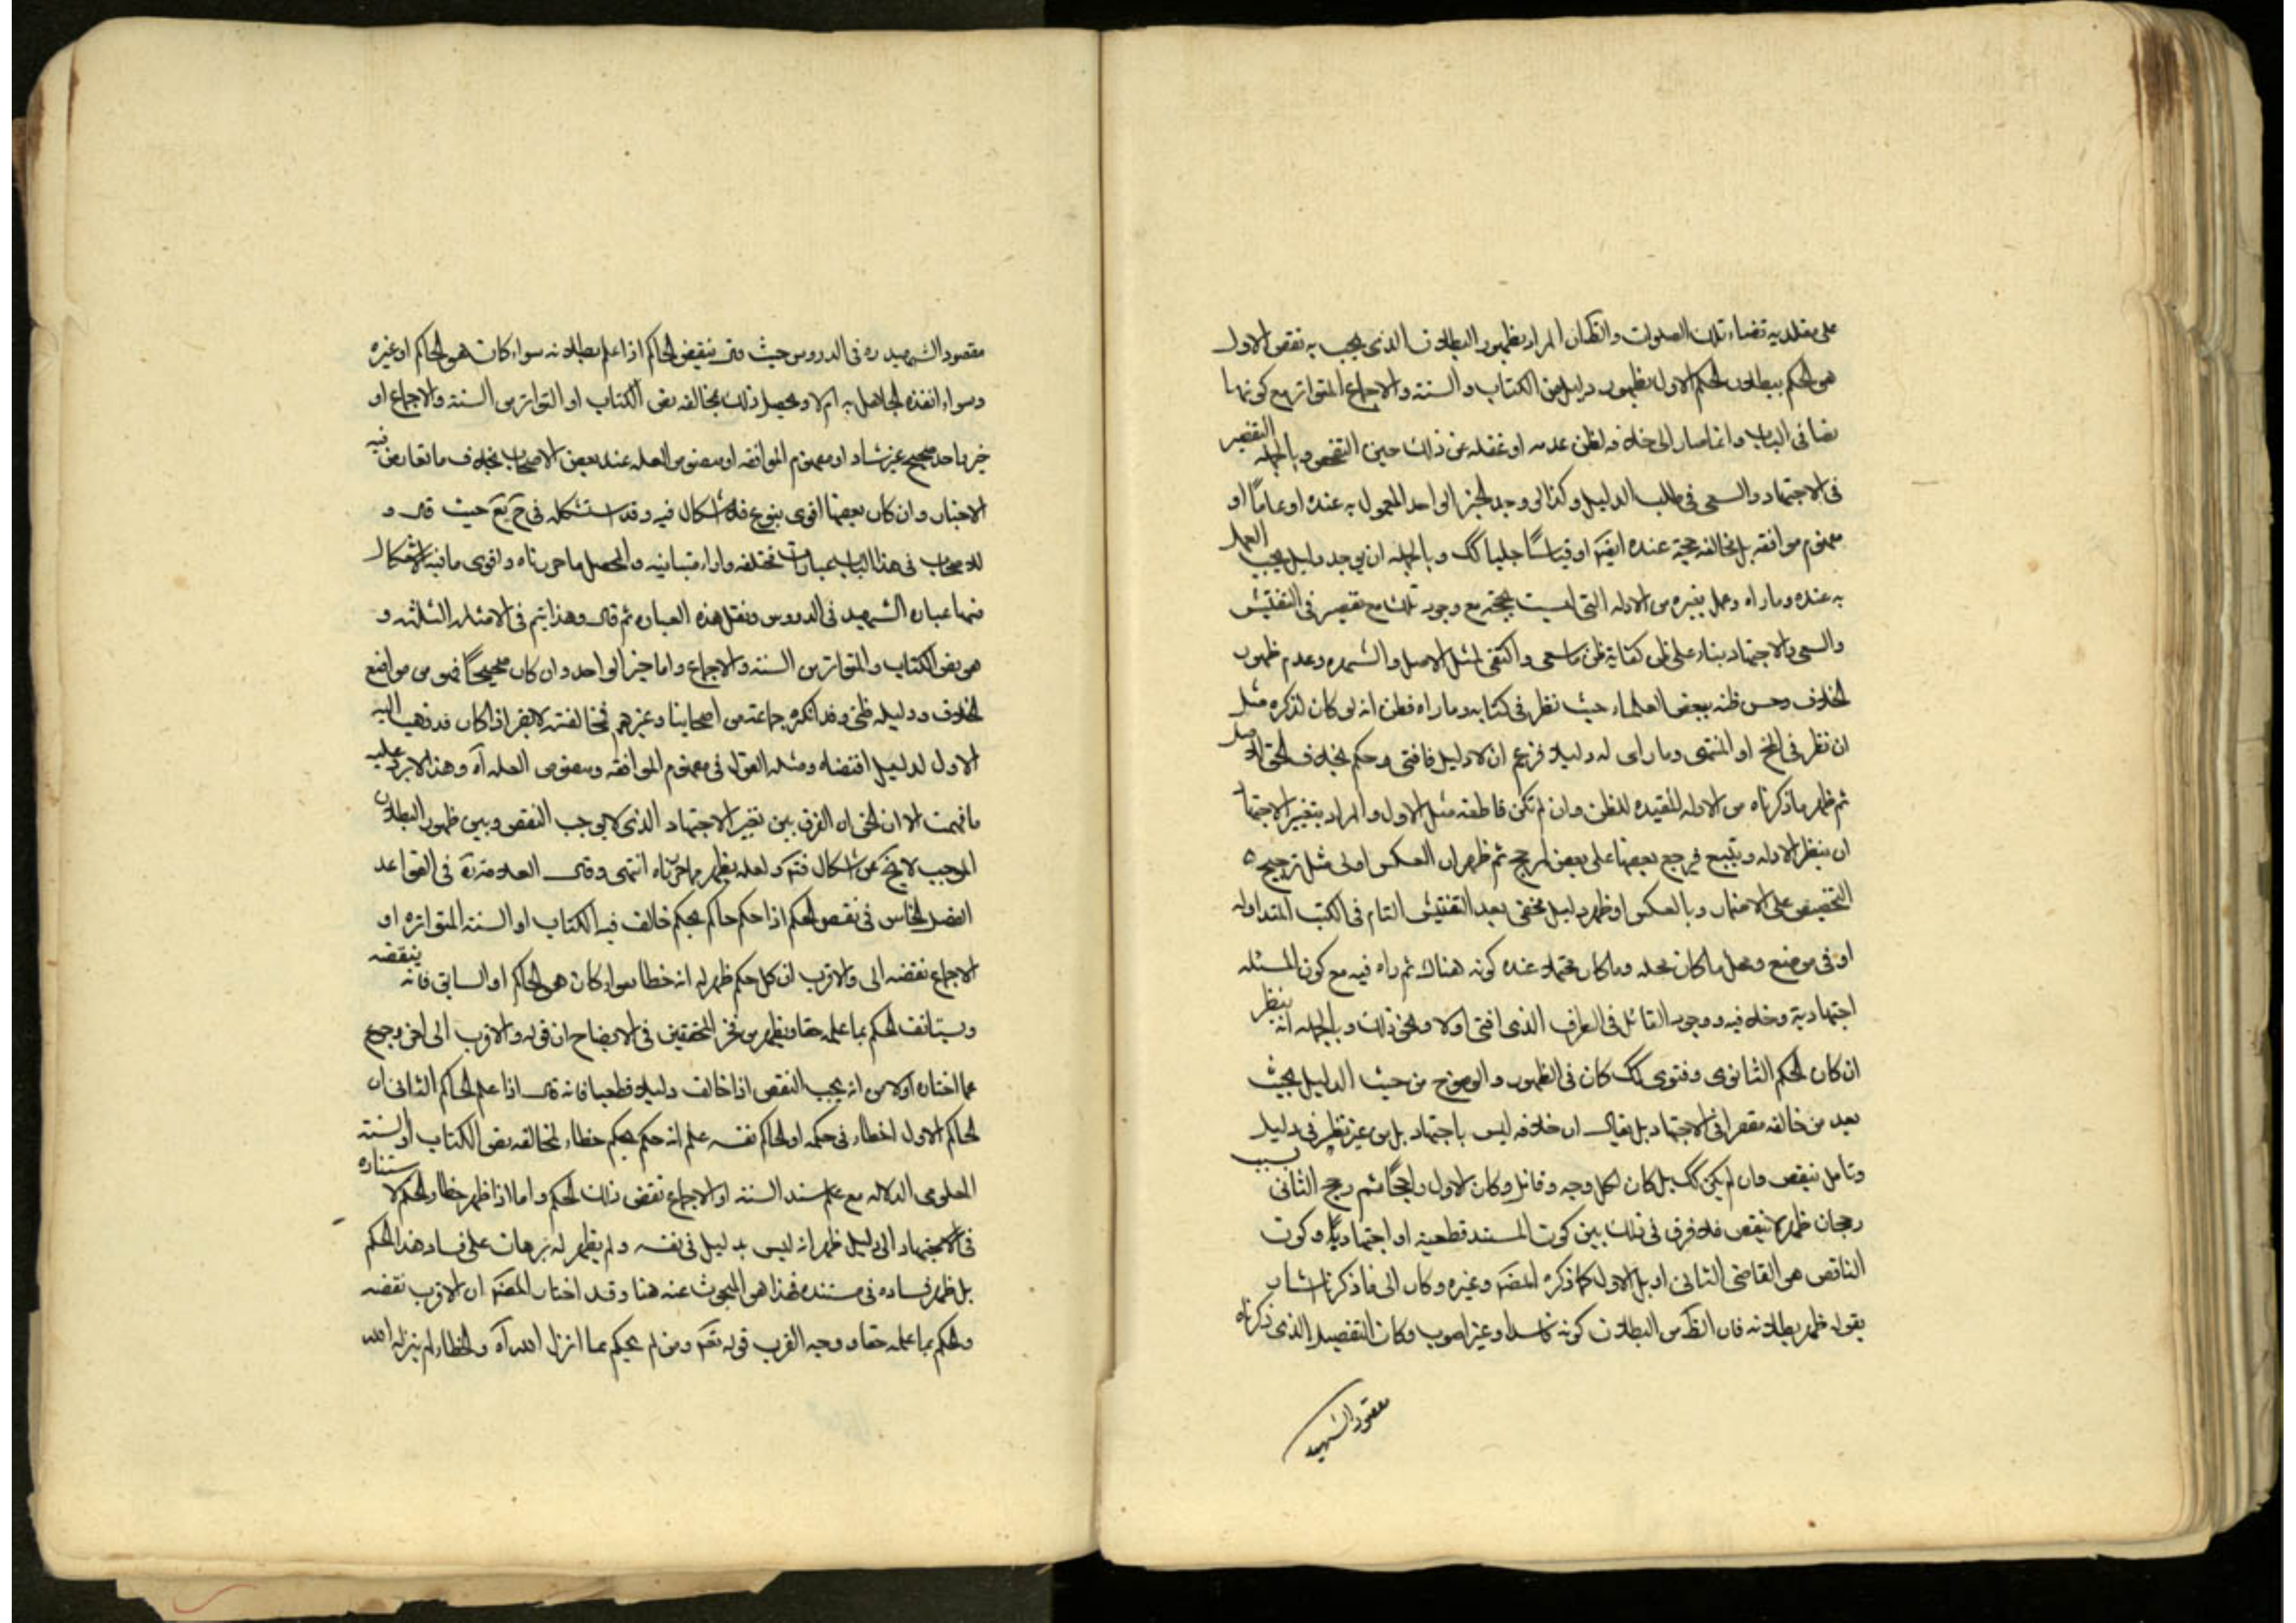 على مقلديه قضاء تلك الصلوات والظان المراد بظهور البطلان الذى يجب به نقض الاول
هو الحكم ببطلان الحكم الاول بظهور دليل من الكتاب والسنة والاجماع المتواتر مع كونها
نصا فى الباب وانما صار الى خلافه لظن عدمه او غفله عن ذلك حين التفحص وبالجمله التقصير
فى الاجتهاد والسعى فى طلب الدليل وكذا لو وجد الخبر الواحد المعمول به عنده او عاما او
مفهوم موافقه بل مخالفه حجة عنده ايضا او قياسا جليا كك وبالجمله ان يوجد دليل يجب العمل
به عنده وما راه وعمل بغيره من الادله التى ليست بحجة مع وجود تلك مع تقصير فى التفتيش
والسعى والاجتهاد بناء على ظن كفاية ظن ما سعى واكتفى بمثل الاصل والشهره وعدم ظهور
الخلاف وحسن ظنه ببعض العلماء حيث نظر فى كتابه وما راه فظن انه لو كان لذكره مثل
ان نظر فى المخ او المنتهى وما راى له دليلا فزعم ان لا دليل فافتى وحكم بخلاف الحق الاصل
ثم ظهر ما ذكرناه من الادله المفيده للظن وان لم تكن قاطعه مثل الاول والمراد بتغيير الاجتهاد
ان ينظر الادله ويتتبع فرجع بعضها على بعض لمرجح ثم ظهر ان العكس اولى مثل ترجيح
التخصيص على الاضمار وبالعكس او ظهر دليل مخفى بعد التفتيش التام فى الكتب المتداوله
او فى موضع ومحل ما كان محله وما كان محتملا عنده كونه هناك ثم راه فيه مع كون المسئله
اجتهادية وخلافيه ووجود القائل فى الطرف الذى افتى اولا ونحو ذلك وبالجمله انه ينظر
ان كان الحكم الثانوى وفتوى كك كان فى الظهور والوضوح من حيث الدليل بحيث
يعد من خالفه مقصرا فى الاجتهاد بل يقال ان خلافه ليس باجتهاد بل من غير نظر فى دليل
وتامل فينقض وان لم يكن كك بل كان لكل وجه وقائل وكان الاول راجحا ثم رجح الثانى بسبب
رجحان ظهر لا ينقض فلا فرق فى ذلك بين كون المستند قطعيه او اجتهاديا وكون
الناقض هو القاضى الثانى او بل الاول كما ذكره المصنف وغيره وكان الى ما ذكرنا اشار
بقوله ظهر بطلانه فان الظ من البطلان كونه فاسدا وغير اصوب وكان التفصيل الذى ذكرناه
مقصود الشهيد
مقصود الشهيد ره فى الدروس حيث قال ينقض الحكم اذا علم بطلانه سواء كان هو الحاكم او غيره
وسواء انفذه الجاهل به ام لا ويحصل ذلك بمخالفه نص الكتاب او المتواتر من السنة والاجماع او
خبر واحد صحيح غير شاذ او مفهوم الموافقه او منصوص العله عند بعض الاصحاب بخلاف ما تعارض فيه
الاخبار وان كان بعضها اقوى بنوع فلا اشكال فيه وقد استشكله فى ح يع حيث قال و
للاصحاب فى هذا الباب عبارات مختلفه واراء متباينه والمحصل ما حررناه واقوى ما فيه الاشكال
منها عباره الشهيد فى الدروس ونقل هذه العباره ثم قال وهذا يتم فى الامثله الثلثه و
هو نص الكتاب والمتواتر من السنة والاجماع واما خبر الواحد وان كان صحيحا فهو من مواضع
الخلاف ودليله ظنى وقد انكره جماعة من اصحابنا وغيرهم فمخالفته لا يضر اذا كان قد ذهب اليه
الاول لدليل اقتضاه ومثله القول فى مفهوم الموافقه ومنصوص العله آه وهذا لا يرد عليه
ما فهمت الا ان الحق ان الفرق بين تغير الاجتهاد الذى لا يوجب النقض وبين ظهور البطلان
الموجب لا يخ عن اشكال فتدبر ولعله يظهر مما حررناه انتهى وقال العلامه ره فى القواعد
الفصل الخامس فى نقض الحكم اذا حكم حاكم بحكم خالف فيه الكتاب او السنة المتواتره او
الاجماع نقضه الى والاقرب ان كل حكم ظهر له انه خطا سواء كان هو الحاكم او السابق فانه ينقضه
ويستانف الحكم بما علمه حقا ويظهر من فخر المحققين فى الايضاح ان قوله والاقرب الى اخره رجوع
عما اختاره اولا من انه يجب النقض اذا خالف دليلا قطعيا فانه قال اذا علم الحاكم الثانى ان
الحاكم الاول اخطاء فى حكمه او الحاكم نفسه علم انه حكم بحكم خطاء لمخالفه نص الكتاب او السنة
المعلومى الدلاله مع علم سند السنة او الاجماع نقض ذلك الحكم واما اذا ظهر خطاء الحكم لاستناده
فى الاجتهاد الى دليل ظهر انه ليس بدليل فى نفسه ولم يظهر له برهان على فساد هذا الحكم
بل ظهر فساده فى مستنده فهذا هو المبحوث عنه هنا وقد اختار المصنف ان الاقرب نقضه
والحكم بما علمه حقا ووجه القرب قوله تعالى ومن لم يحكم بما انزل الله آه والخطاء لم ينزله الله